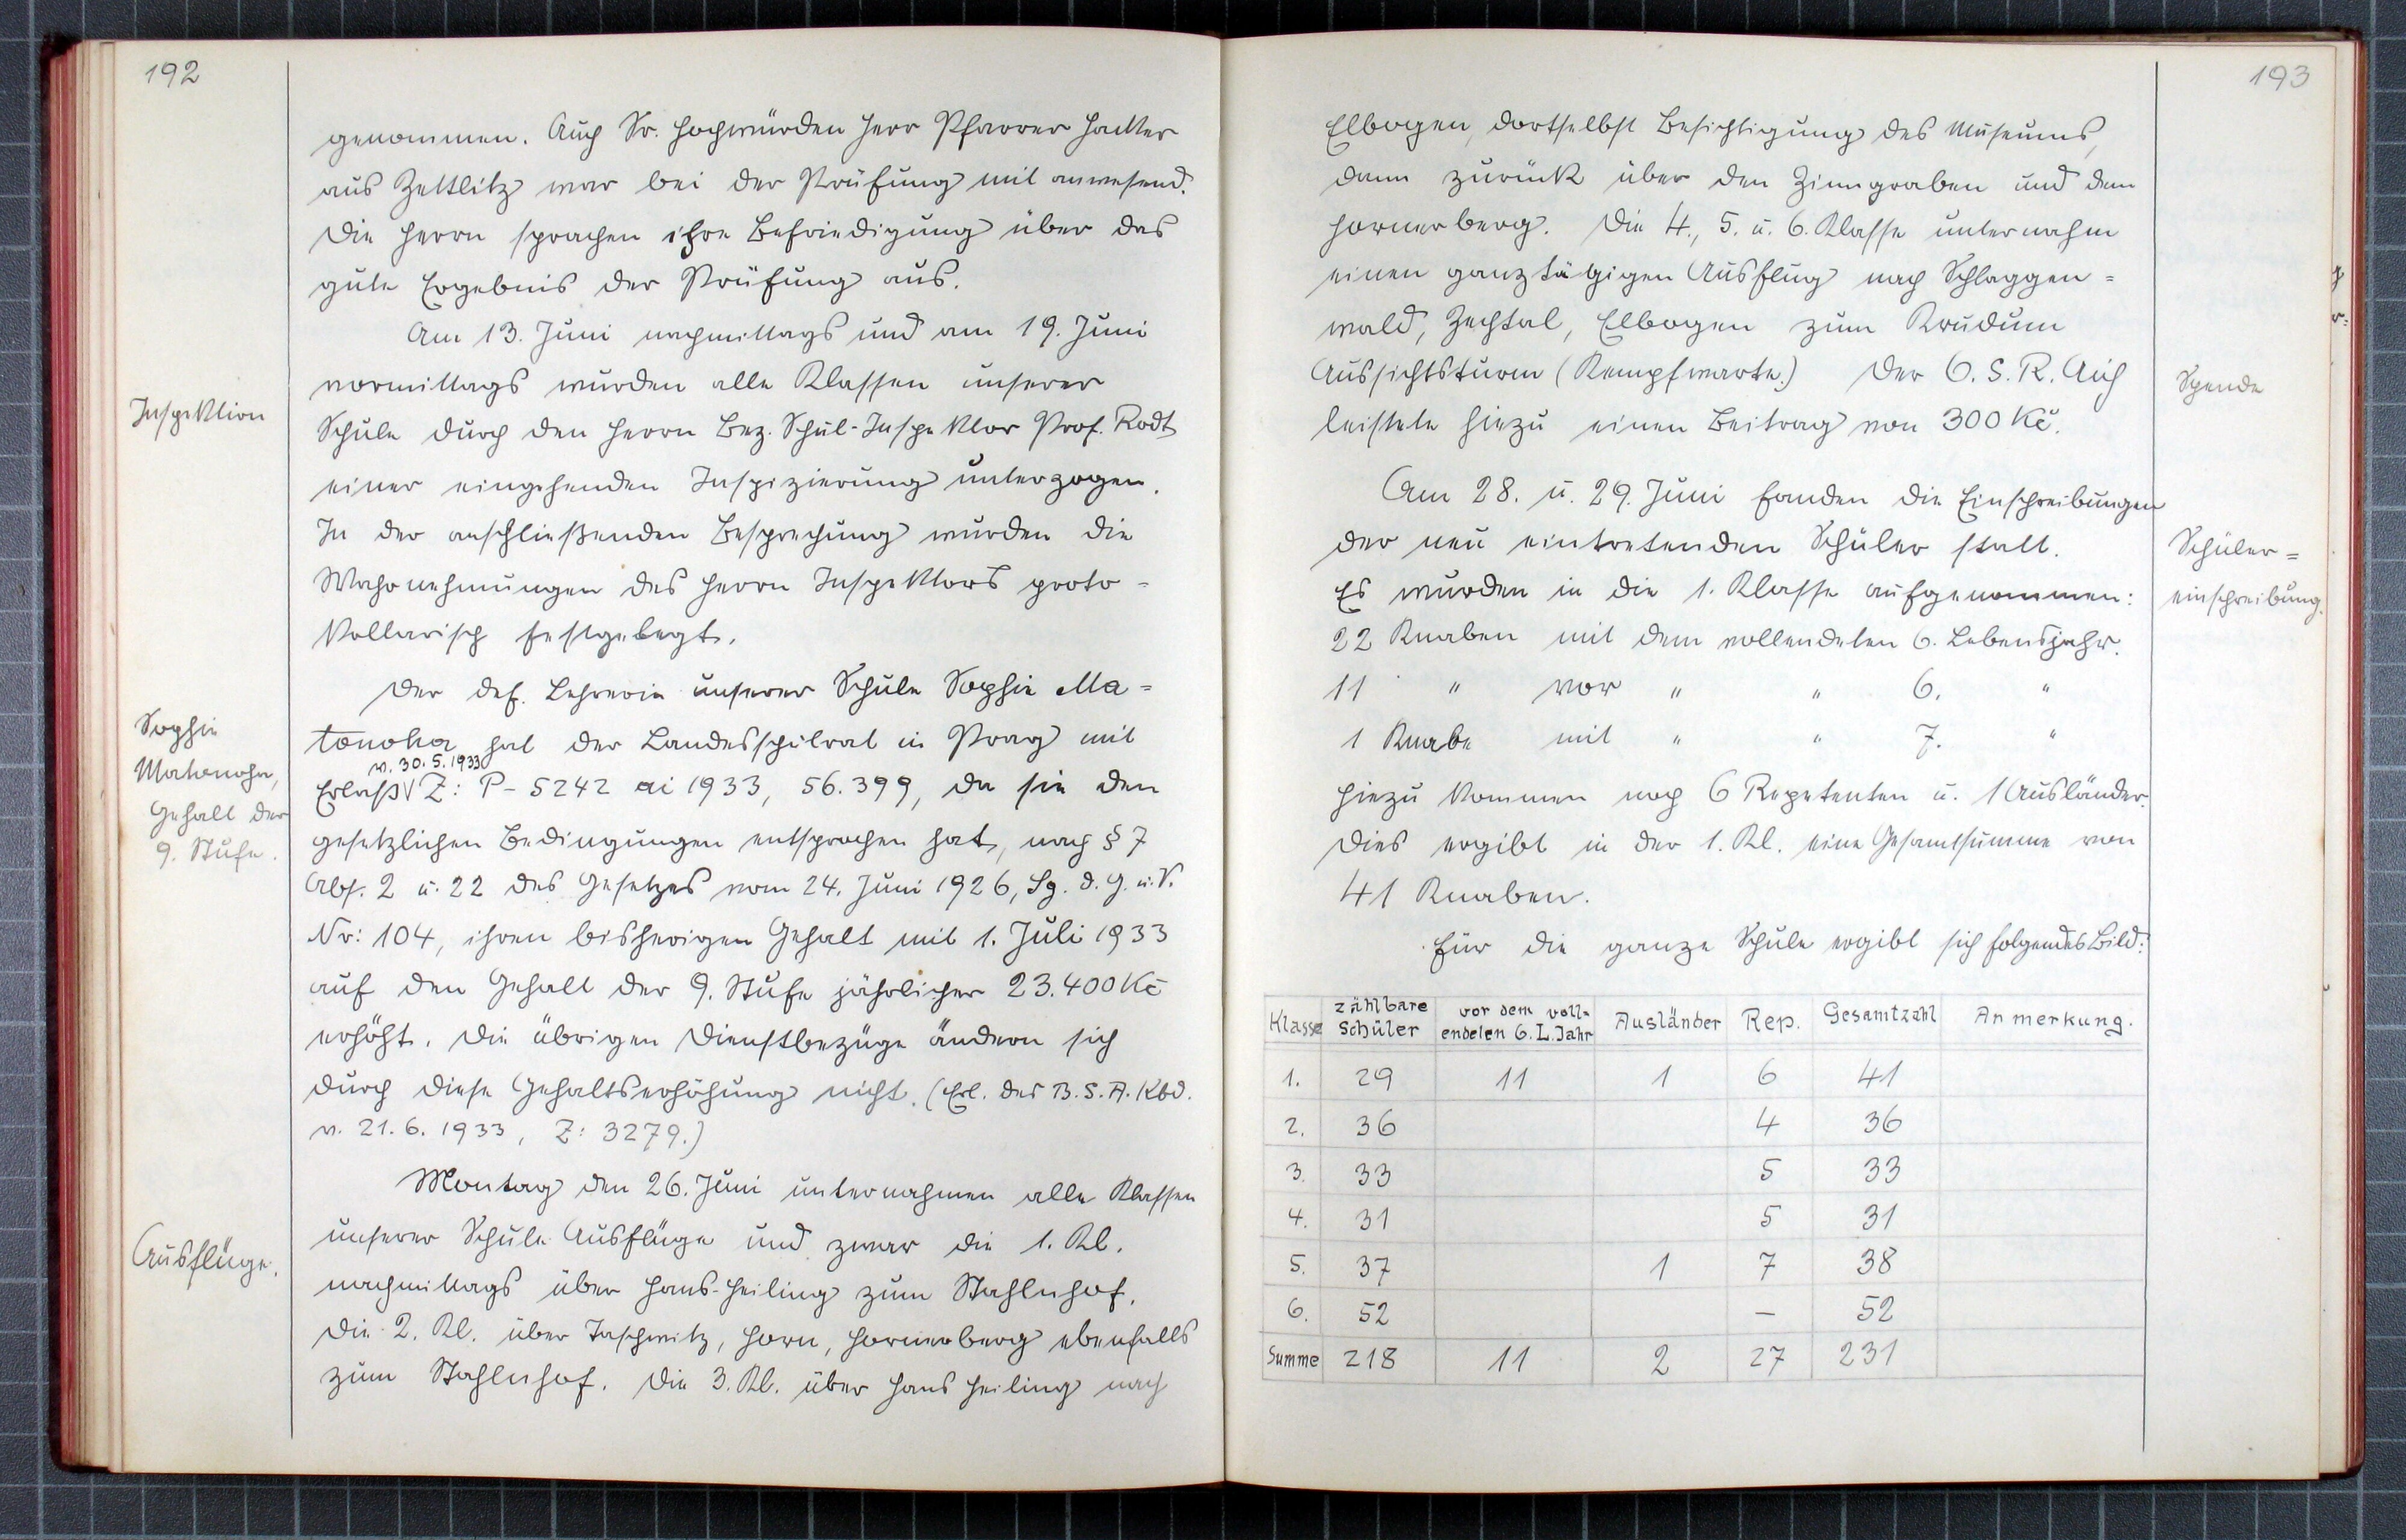 192
genommen. Auch Sr. Hochwürden Herr Pfarrer Hacker
aus Zettlitz war bei der Prüfung mit anwesend.
Die Herrn sprachen ihre Befriedigung über das
gute Ergebnis der Prüfung aus.
Am 13. Juni nachmittags und am 19. Juni
vormittags wurden alle Klassen unserer
Inspektion
Schule durch den Herrn Bez. Schul-Inspektor Prof. Rodt
einer eingehenden Inspizierung unterzogen.
In der anschließenden Besprechung wurden die
Wahrnehmungen des Herrn Inspektors proto-
kollarisch festgelegt.
Der def. Lehrerin unserer Schule Sophie Ma-
Sophie
Matonoha,
Gehalt der
9. Stufe.
tonoha hat der Landesschulrat in Prag mit
v. 30. 5. 1933
Erlaß √ Z: P - 5242 ai 1933, 56.399, da sie den
gesetzlichen Bedingungen entsprochen hat, nach § 7
Abs. 2 u. 22 des Gesetzes vom 24. Juni 1926, Sg. d. G. u. V.
Nr: 104, ihren bisherigen Gehalt mit 1. Juli 1933
auf den Gehalt der 9. Stufe jährlicher 23.400 Kč
erhöht. Die übrigen Dienstbezüge ändern sich
durch diese Gehaltserhöhung nicht. (Erl. des B. S. A. Kbd.
v. 21. 6. 1933, Z: 3279.)
Montag den 26. Juni unternahmen alle Klassen
Ausflüge.
unserer Schule Ausflüge und zwar die 1. Kl.
nachmittags über Hans-Heiling zum Stahlnhof.
Die 2. Kl. über Taschwitz, Horn, Hornerberg ebenfalls
zum Stahlnhof. Die 3. Kl. über Hans Heiling nach
193
Elbogen, dortselbst Besichtigung des Museums,
dann zurück über den Zinngraben und dem
Hornerberg. Die 4., 5. u. 6. Klasse unternahm
einen ganztätgigen Ausflug nach Schlaggen-
wald, Zechtal, Elbogen zum Krudum
Aussichtsturm (Kempfwarte.) Der O. S. R. Aich
Spende
leistete hiezu einen Beitrag von 300 Kč.
Am 28. u. 29. Juni fanden die Einschreibungen
der neu eintretenden Schüler statt.
Schüler-
einschreibung.
Es wurden in die 1. Klasse aufgenommen:
22 Knaben mit dem vollendeten 6. Lebensjahr.
11 " vor " " 6. "
1 Knabe mit " " 7. "
Hiezu kommen noch 6 Repetenten u. 1 Ausländer.
Dies ergibt in der 1. Kl. eine Gesamtsumme von
41 Knaben.
Für die ganze Schule ergibt sich folgendes Bild:
Klasse zählbare Schüler vor dem voll-endeten 6. L. Jahr Ausländer Rep. Gesamtzahl Anmerkung.
1. 29 11 1 6 41
2. 36 4 36
3. 33 5 33
4. 31 5 31
5. 37 1 7 38
6. 52 — 52
Summe 218 11 2 27 231